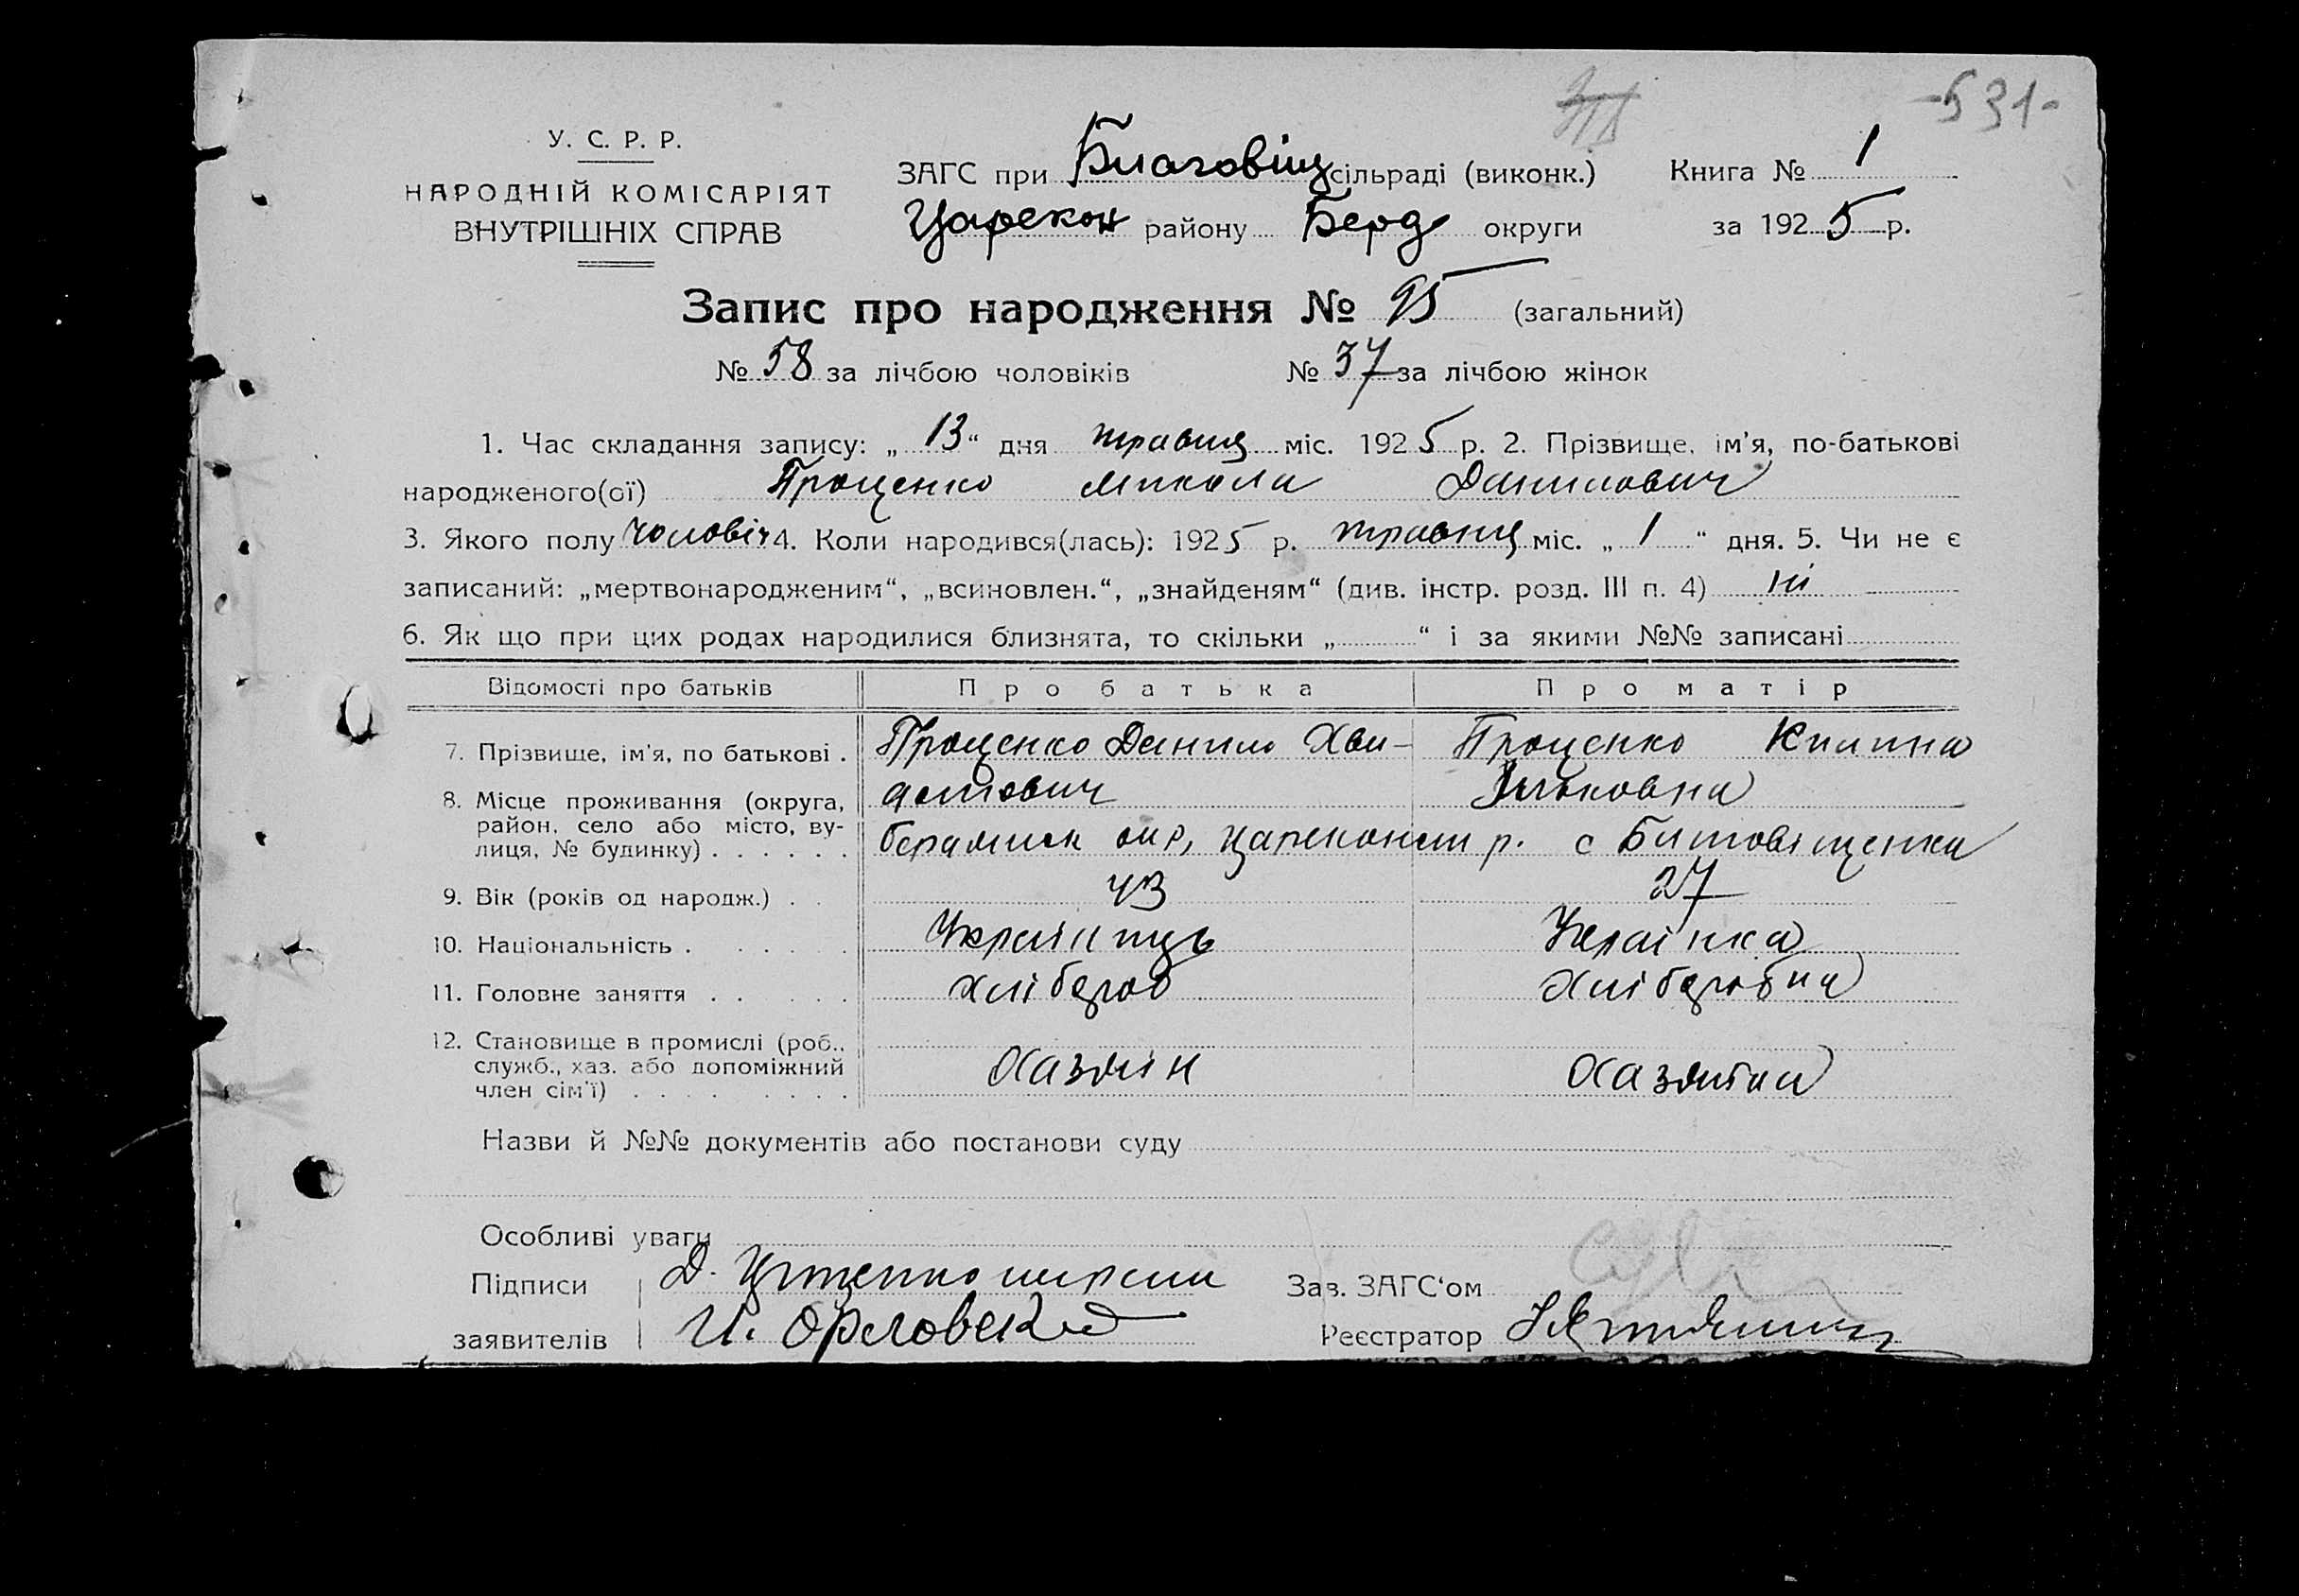 -531-
У. С. Р. Р.
НАРОДНІЙ КОМІСАРІЯТ
ВНУТРІШНІХ СПРАВ
ЗАГС при Благовіщ сільраді (виконк.) Книга № 1
Царекон району Берд округи за 1925 р.
Запис про народження № 95 (загальний)
№ 58 за лічбою чоловіків № 37 за лічбою жінок
1. Час складання запису: „13“ дня травня міс. 1925 р. 2. Прізвище, ім'я, по-батькові
народженого(ої) Проценко Микола Данилович
3. Якого полу чоловіч 4. Коли народився(лась): 1925 р. травня міс. „1“ дня. 5. Чи не є
записаний: „мертвонародженим“, „всиновлен.“, „знайденям“ (див. інстр. розд. III п. 4) ні
6. Як що при цих родах народилися близнята, то скільки „ “ і за якими №№ записані
Відомості про батьків Про батька Про матір
7. Прізвище, ім'я, по батькові . Проценко Данило Хви- Проценко Килина
8. Місце проживання (округа,
район, село або місто, ву-
лиця, № будинку) . . . . . . р. с
9. Вік (років од народж.) . . 43 27
10. Національність . . . . . . Українець Українка
11. Головне заняття . . . . . хлібороб хліборобка
12. Становище в промислі (роб.,
служб., хаз. або допоміжний
член сім'ї) . . . . . . . . Хазяїн Хазяйка
Назви й №№ документів або постанови суду
Особливі уваги
Підписи Д. Зав. ЗАГС'ом
заявителів И. Орловский Реєстратор